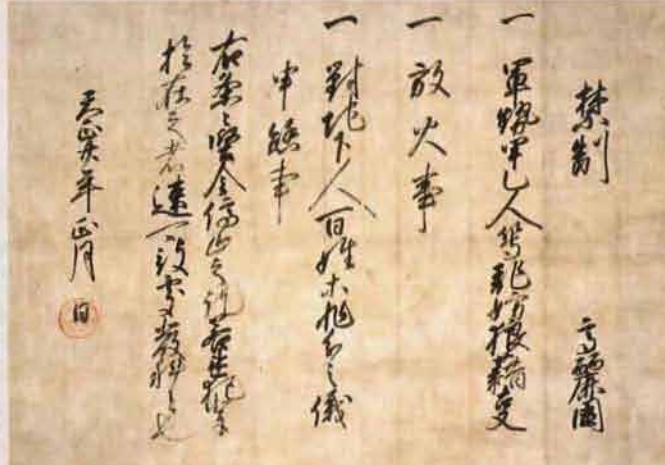 禁制 高麗國
一 軍勢甲乙人等乱妨狼藉事
一 放火事
一 對地下人百姓等非分之儀
申懸事
右条々堅令停止之訖若違犯輩
於在之者速可被處嚴科者也
天正廿年正月日